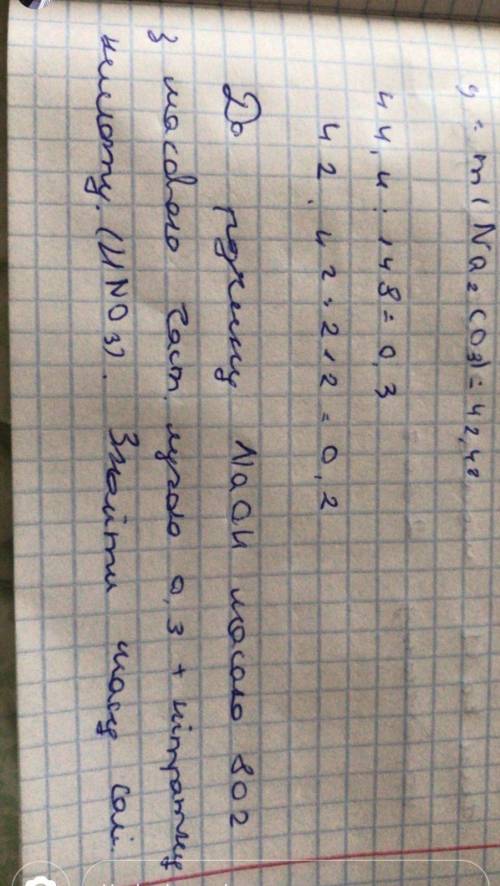 m(Na2CO3) = 42,4г
44,4 : 148 = 0,3
42,42 : 212 = 0,2
До розчину NaOH масою 80г
з масового част. лугою 0,3 + нітратну
кислоту. (HNO3). Знайти масу солі.